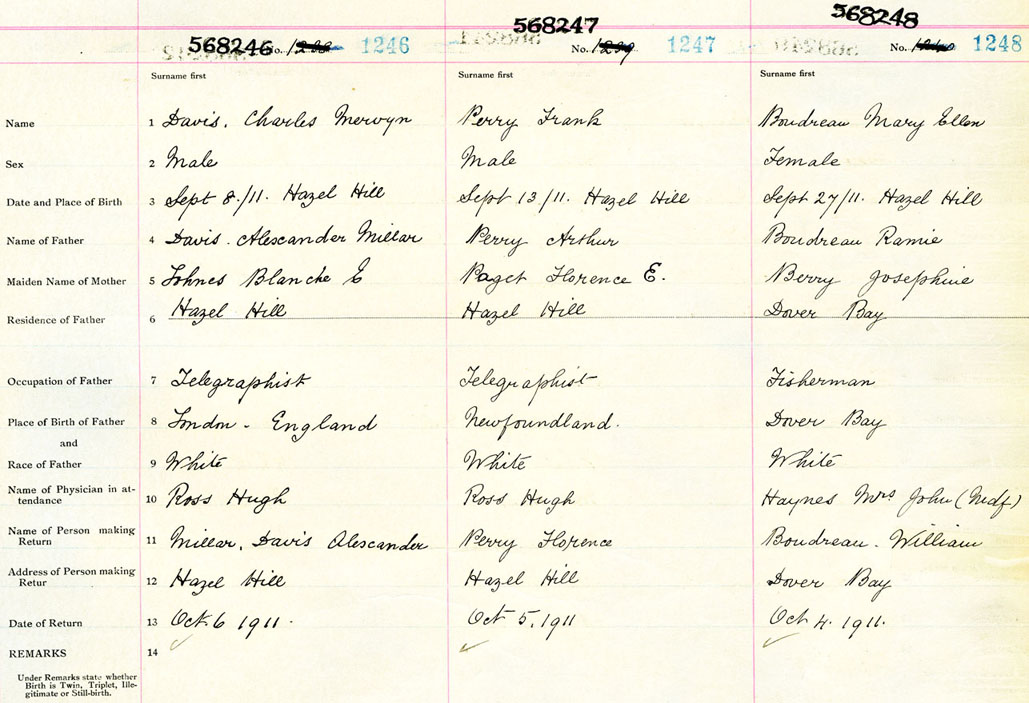 568246 568247 568248
No. 1246 No. 1239 1247 No. 1248
Surname first Surname first Surname first
Name 1 Davis. Charles Mervyn Perry Frank Boudreau Mary Ellen
Sex 2 Male Male Female
Date and Place of Birth 3 Sept 8./11. Hazel Hill Sept 13/11. Hazel Hill Sept 27/11. Hazel Hill
Name of Father 4 Davis. Alescander Millar Perry Arthur Boudreau Ramie
Maiden Name of Mother 5 Johnes Blanche E Paget Florence E. Berry Josephine
Residence of Father 6 Hazel Hill Hazel Hill Dover Bay
Occupation of Father 7 Telegraphist Telegraphist Fisherman
Place of Birth of Father 8 London - England Newfoundland. Dover Bay
and
Race of Father 9 White White White
Name of Physician in at-
tendance 10 Ross Hugh Ross Hugh Haynes Mrs John (Mdf)
Name of Person making
Return 11 Millar. Davis Alescander Perry Florence Boudreau. William
Address of Person making
Retur 12 Hazel Hill Hazel Hill Dover Bay
Date of Return 13 Oct. 6 1911. Oct 5. 1911 Oct 4. 1911.
REMARKS 14
Under Remarks state whether
Birth is Twin, Triplet, Ille-
gitimate or Still-birth.